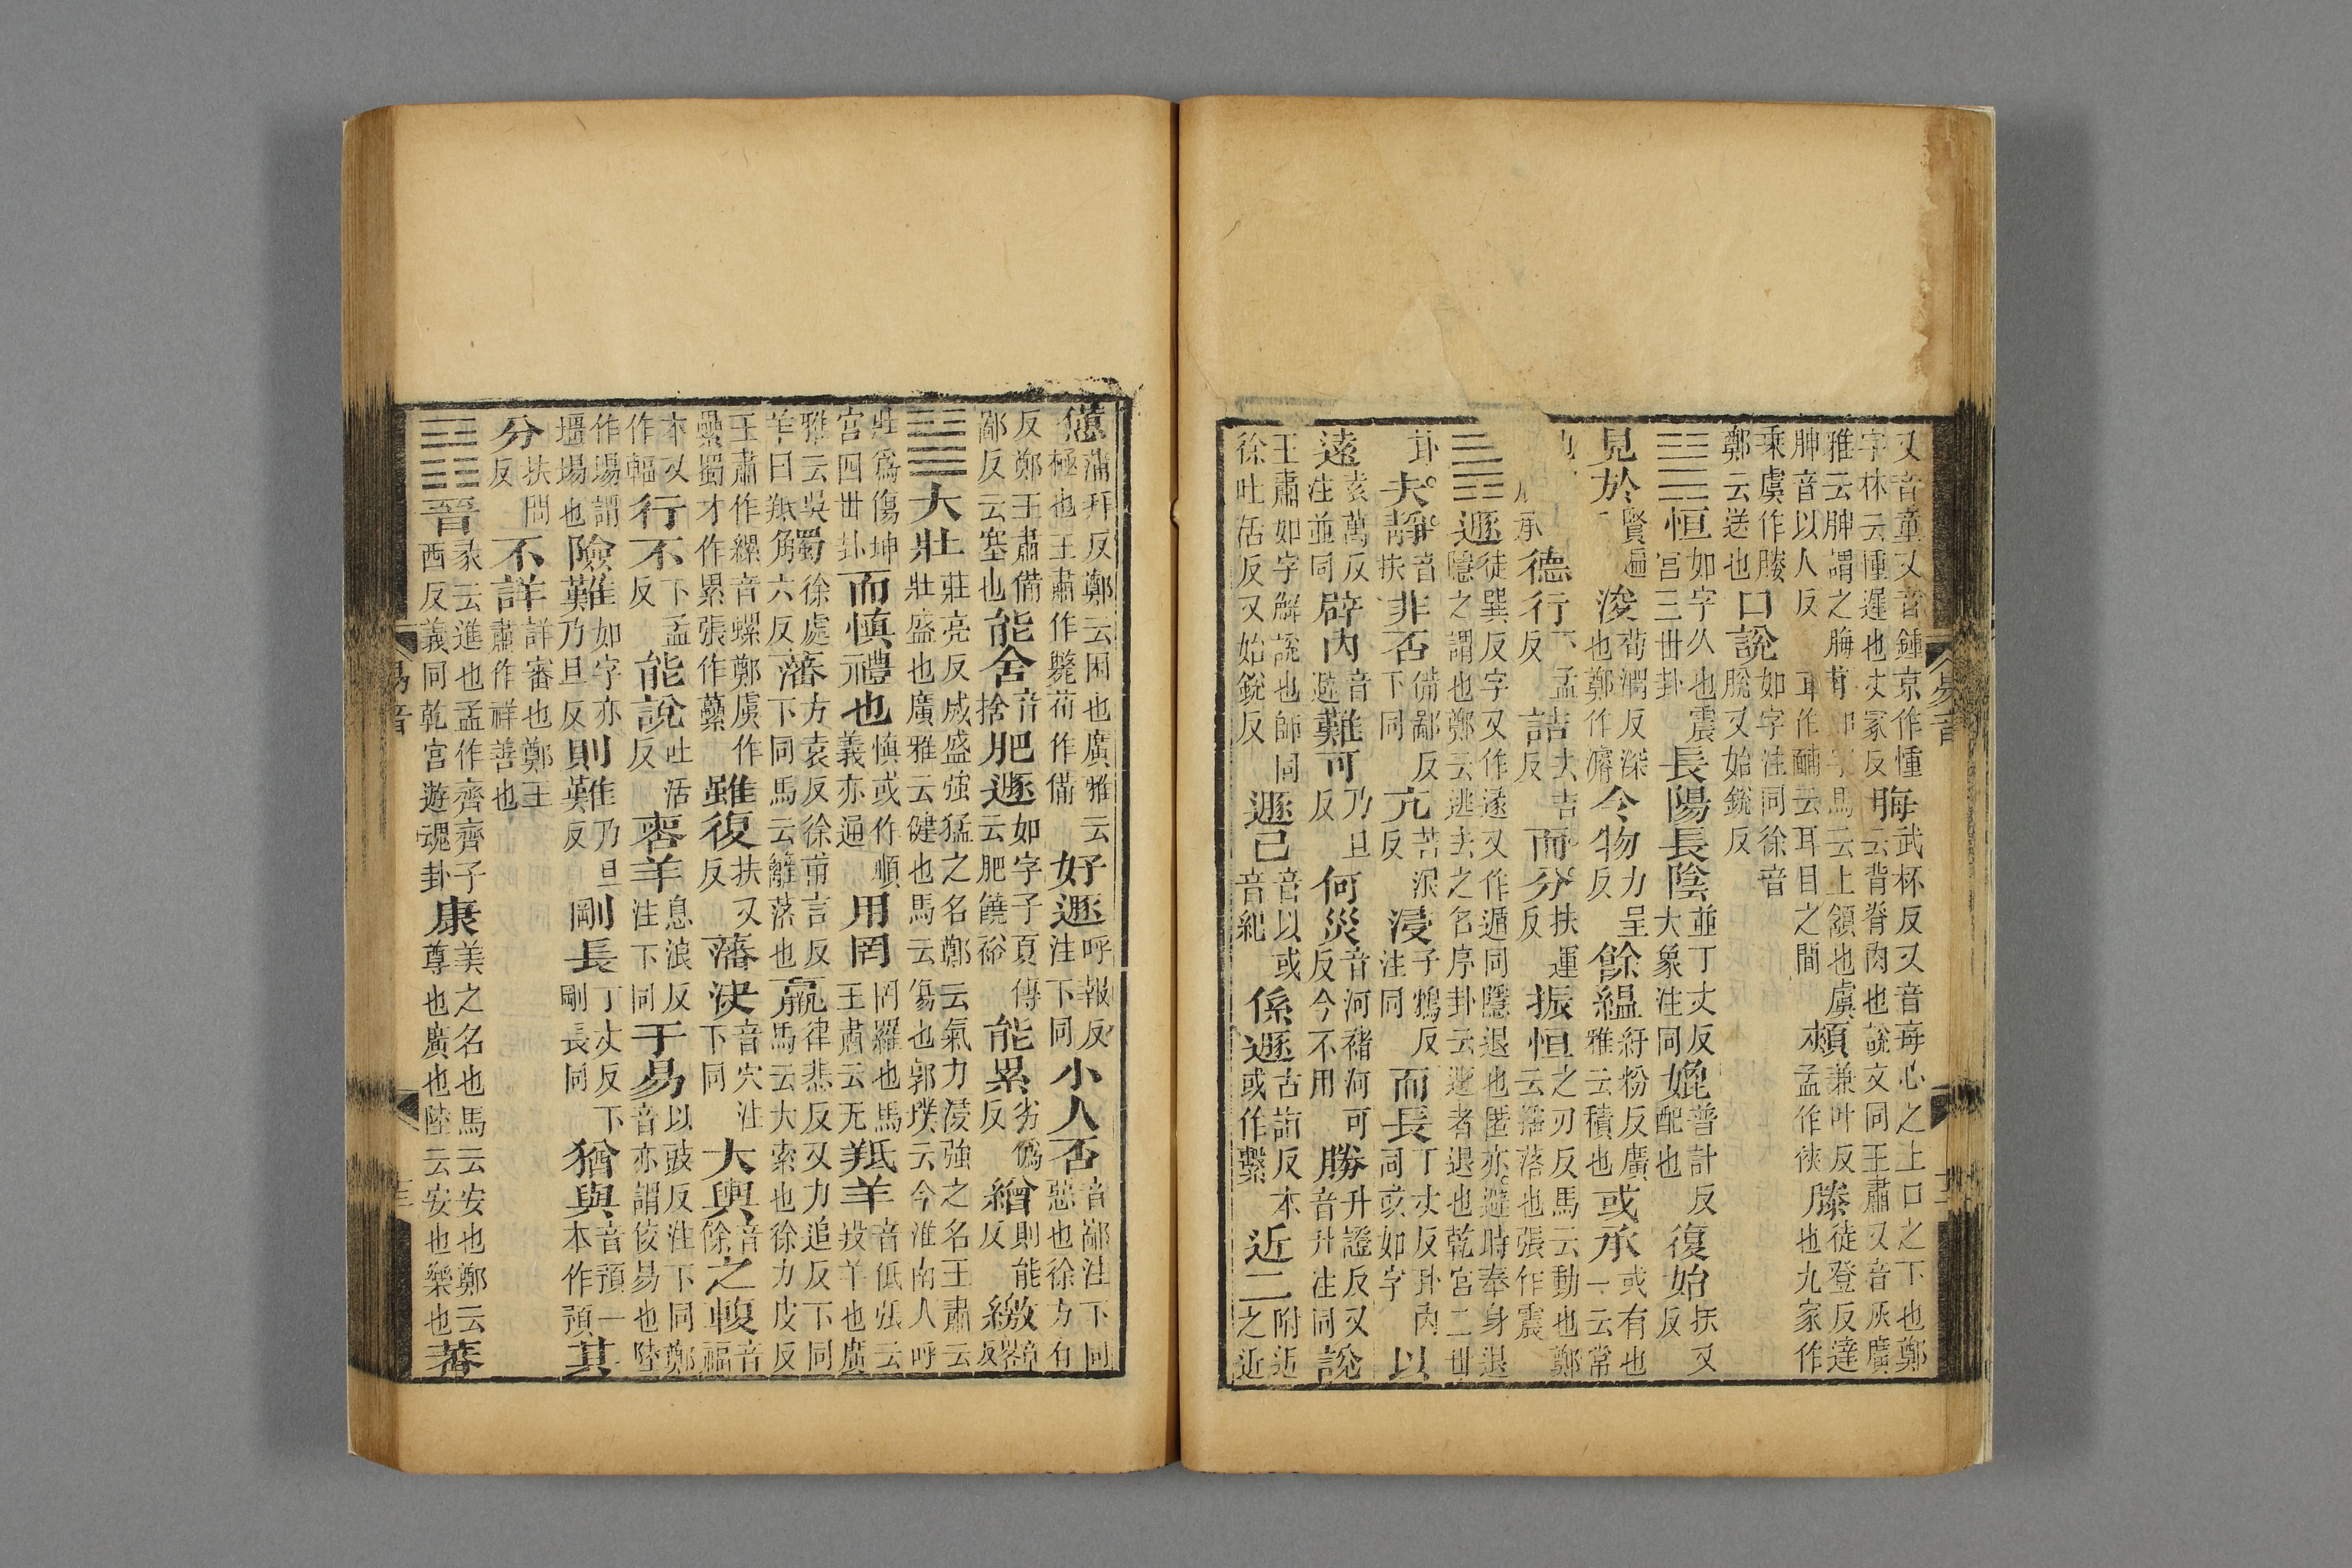 又音童又音鍾京作憧字林云憧遲也丈冡反脢武杯反又音每心之上口之下也鄭云背脊肉也說文同王肅又音灰廣
雅云脾謂之脢脾音以人反馬云上頷也虞作䩉云耳目之間頰兼叶反孟作俠滕徒登反達也九家作
乘虞作媵鄭云送也口說如字注同徐音脫又始銳反
䷟恒如字久也震宮三世卦長陽長陰並丁丈反大象注同媲普計反配也復始扶又反
見於賢遍浚荀潤反深也鄭作濬令物力呈反餘縕紆粉反廣雅云積也或承或有也一云常
承德行下孟反詰去吉反而分扶運反振恒之刃反馬云動也鄭云搖落也張作震
䷠遯徒巽反字又作遂又作遁同隱退也匿亦避時奉身退隱之謂也鄭云逃去之名序卦云遯者退也乾宮二世
卦夫靜音扶非否備鄙反下同亢苦浪反浸子鴆反注同而長丁丈反卦內同或如字以
遠袁萬反注並同辟內音避難可乃旦反何災音河褚河可反今不用勝升證反又音升注同說
王肅如字解說也師同徐吐活反又始銳反遯已音以或音紀係遯古詣反本或作繫近二附近之近
易音
憊蒲拜反鄭云困也廣雅云極也王肅作斃荀作備好遯呼報反注下同小人否音鄙注下同惡也徐方有
反鄭王肅備鄙反云塞也能舍音捨肥遯如字子夏傳云肥饒裕能累劣僞反繒則能反繳章略反
䷡大壯莊亮反威盛強猛之名鄭云氣力浸強之名王肅云壯盛也廣雅云健也馬云傷也郭璞云今淮南人呼
壯爲傷坤宮四世卦而慎禮也慎或作順義亦通用罔罔羅也馬王肅云无羝羊音低張云羖羊也廣
雅云吳羊曰羝觸徐處六反藩方袁反徐甫言反下同馬云籬落也羸律悲反又力追反下同馬云大索也徐力皮反
王肅作縲音螺鄭虞作纍蜀才作累張作虆雖復扶又反藩決音穴注下同大輿音餘之輹音福
本又作輻行不下孟反能說吐活反喪羊息浪反注下同于易以豉反注下同鄭音亦謂佼易也陸
作場謂壃場也險難如字亦乃旦反則難乃旦反剛長丁丈反下剛長同猶與音預一本作預其
分扶問反不詳詳審也鄭王肅作祥善也
䷢晉彖云進也孟作齊齊子西反義同乾宮遊魂卦康美之名也馬云安也鄭云尊也廣也陸云安也樂也蕃
易音